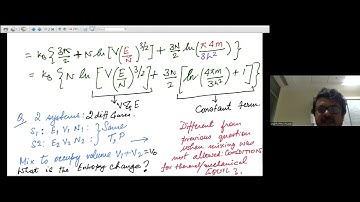 = k_B { 3N/2 + N ln [ V (E/N)^{3/2} ] + 3N/2 ln ( π4m / 3h² ) }
= k_B { N ln [ V (E/N)^{3/2} ] + 3N/2 [ ln ( 4πm / 3h² ) + 1 ] }
V & E
Constant term.
Q. 2 systems: 2 diff gases.
S1: E1 V1 N1 : } Same
S2: E2 V2 N2 : } T, P →
Mix to occupy volume V1+V2 = V0
What is the Entropy change?
Different from
previous question
when mixing was
not allowed: CONDITIONS
for thermal/mechanical
EQUIL?